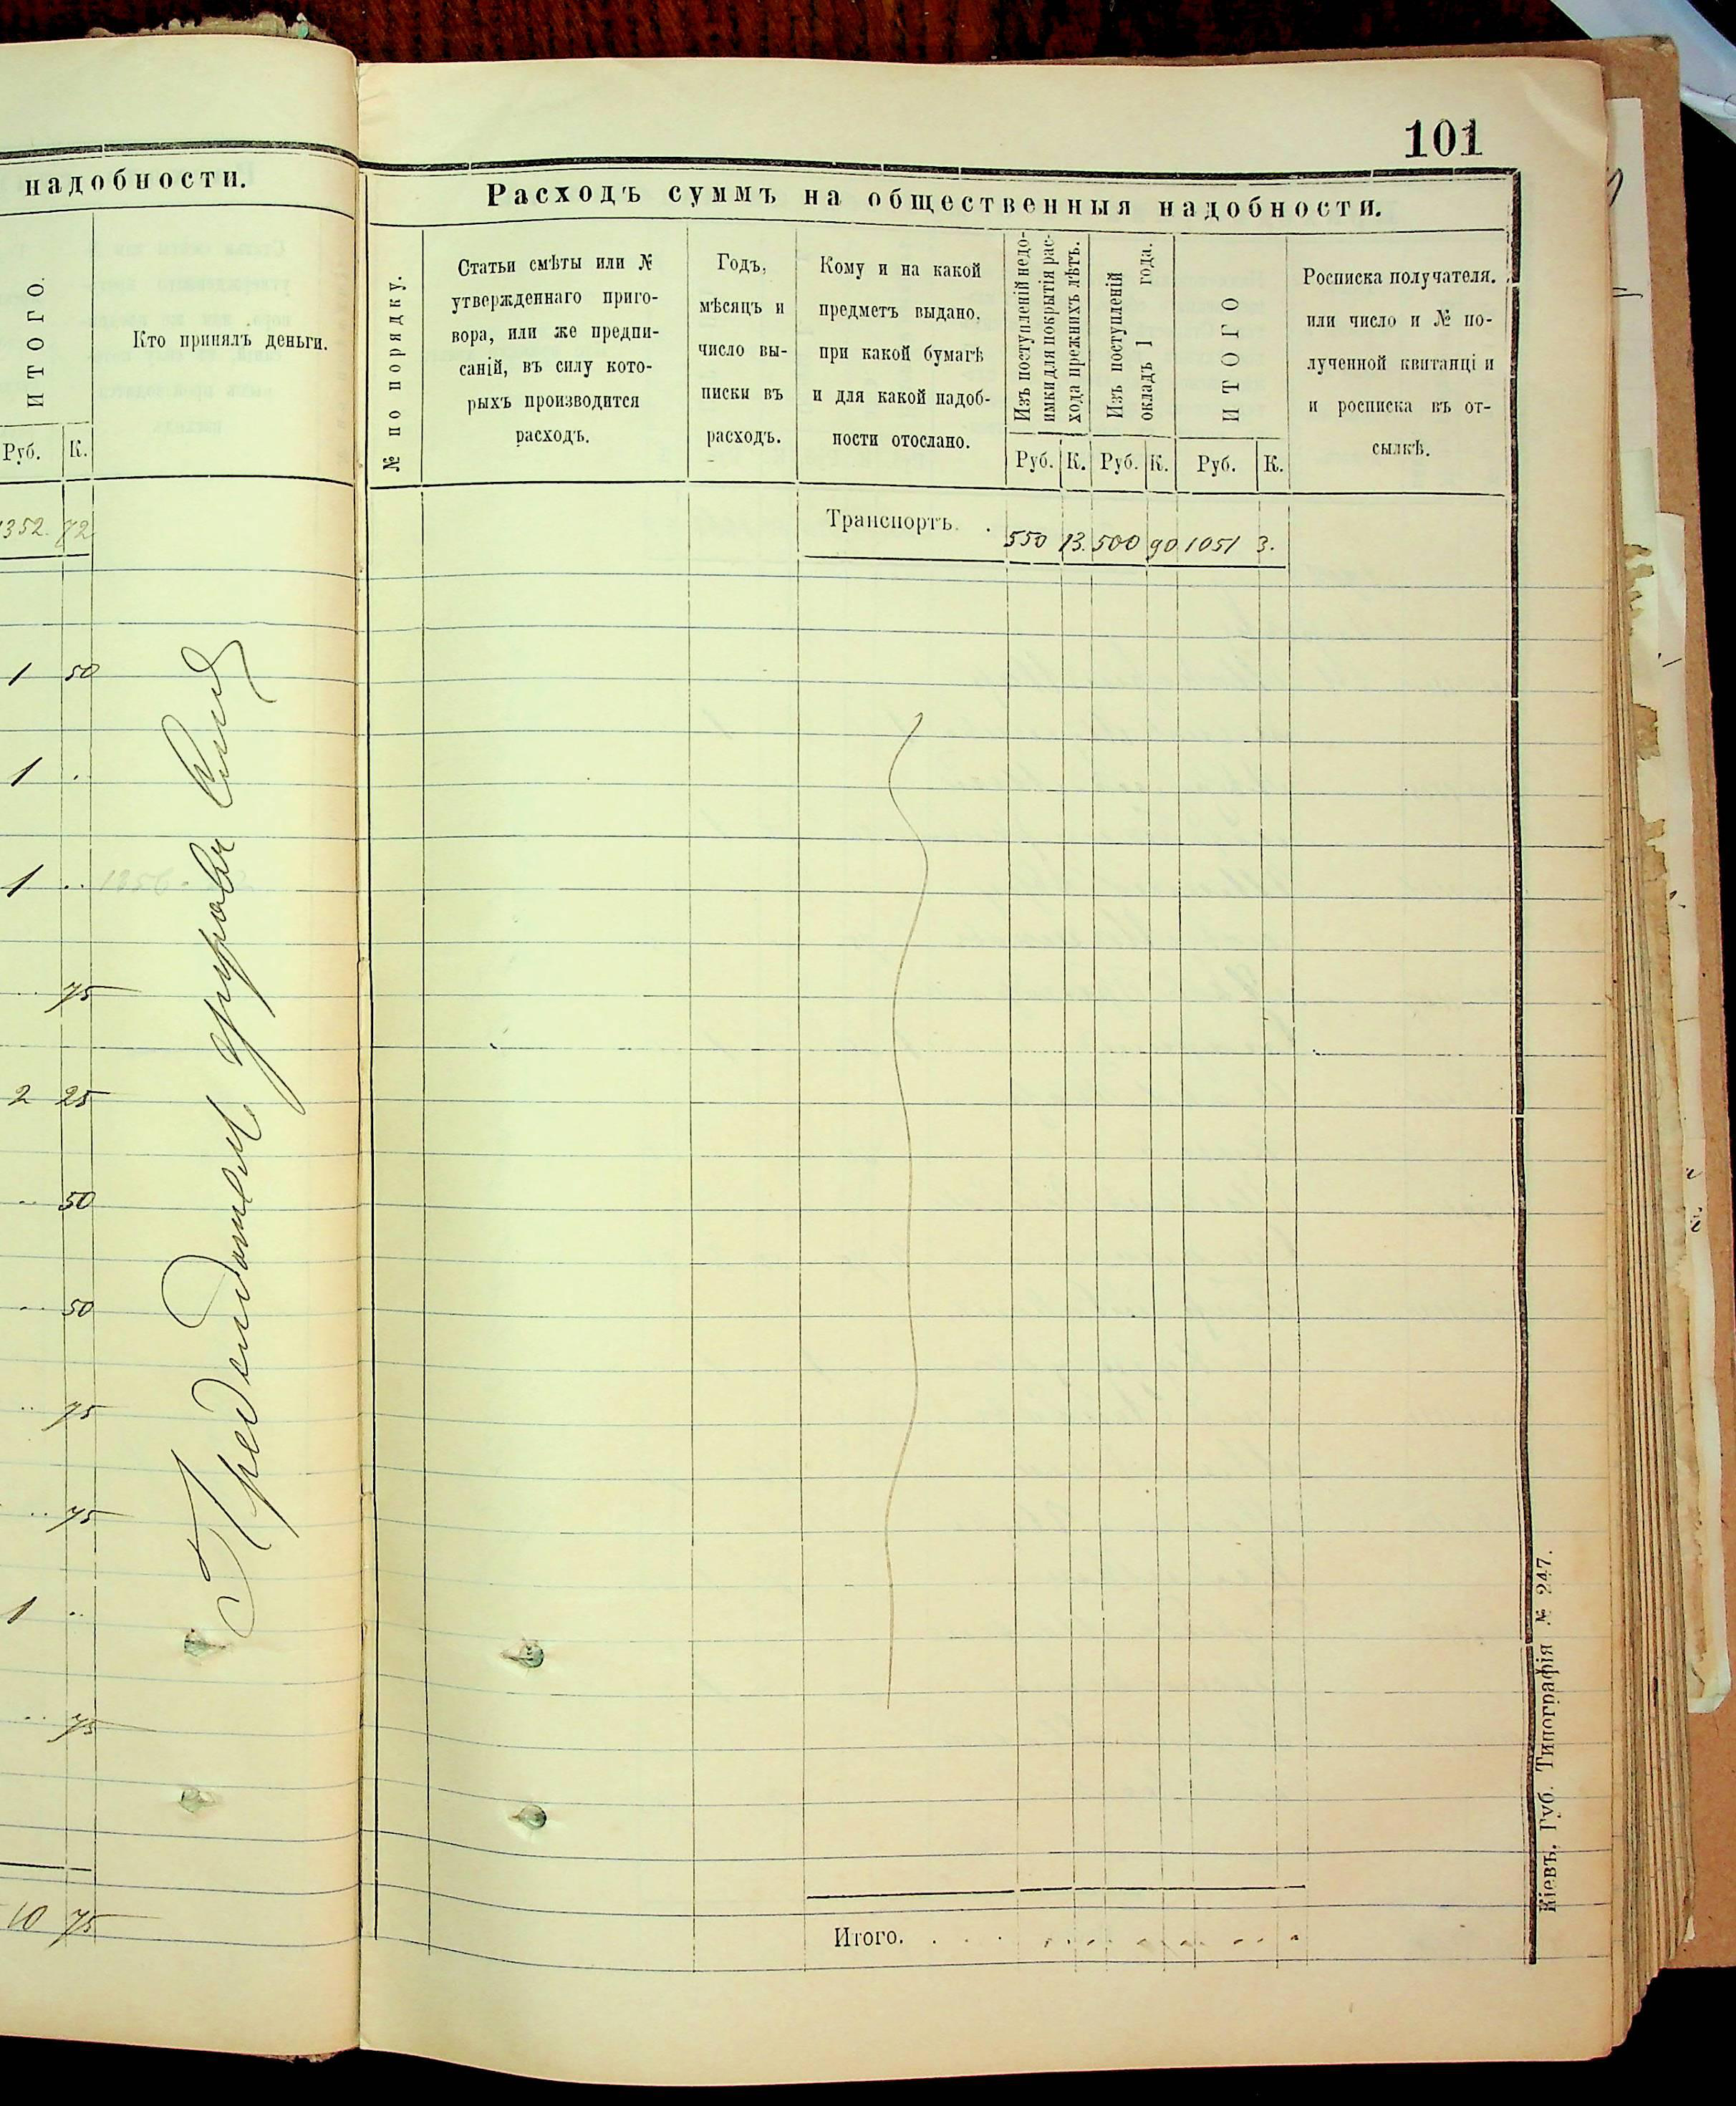 101
надобности.
ИТОГО.
Кто принялъ деньги.
Руб. К.
1352. 72
1 50
1 .
1 ..
.. 75
2 25
.. 50
.. 50
.. 75
.. 75
1 ..
.. 75
10 75
Расходъ суммъ на общественныя надобности.
№ по порядку.
Статьи смѣты или №
утвержденнаго приго-
вора, или же предпи-
саній, въ силу кото-
рыхъ производится
расходъ.
Годъ,
мѣсяцъ и
число вы-
писки въ
расходъ.
Кому и на какой
предметъ выдано,
при какой бумагѣ
и для какой надоб-
ности отослано.
Изъ поступленій недо-
имки для покрытія рас-
хода прежнихъ лѣтъ.
Изъ поступленій
окладъ 1 года.
ИТОГО
Руб. К. Руб. К. Руб. К.
Росписка получателя.
или число и № по-
лученной квитанці и
и росписка въ от-
сылкѣ.
Транспортъ. . 550 13. 500 90 1051 3.
Итого. . . .
Кіевъ. Губ. Типографія № 247.